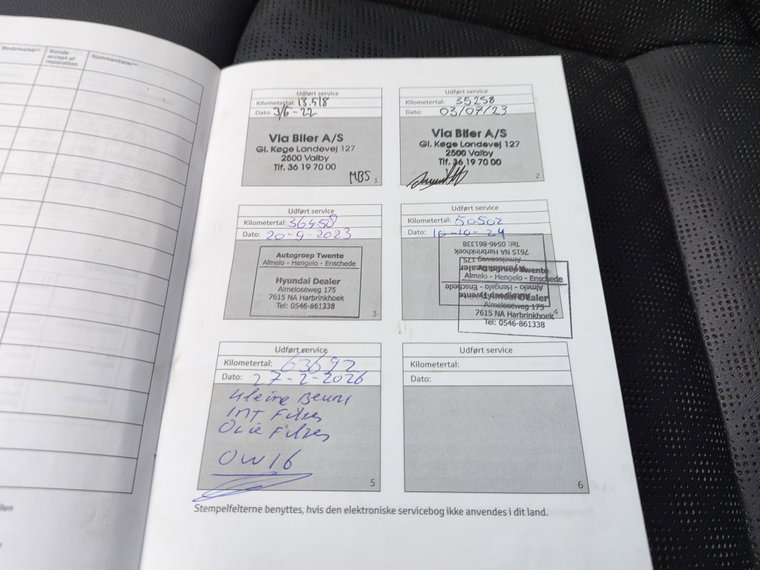 Beskrivelse
Kunde
accept af
reparation
Kommentarer
Udført service
Kilometertal: 13.518
Dato: 3/6-22
Via Biler A/S
Gl. Køge Landevej 127
2500 Valby
Tlf. 36 19 70 00
MBS
1
Udført service
Kilometertal: 35258
Dato: 03/07/23
Via Biler A/S
Gl. Køge Landevej 127
2500 Valby
Tlf. 36 19 70 00
2
Udført service
Kilometertal: 36458
Dato: 20-9-2023
Autogroep Twente
Almelo - Hengelo - Enschede
Hyundai Dealer
Almeloseweg 175
7615 NA Harbrinkhoek
Tel: 0546-861338
3
Udført service
Kilometertal: 50502
Dato: 10-10-24
Tel: 0546-861338
7615 NA Harbrinkhoek
Almeloseweg 175
Hyundai Dealer
Almelo - Hengelo - Enschede
Autogroep Twente
Autogroep Twente
Almelo - Hengelo - Enschede
Hyundai Dealer
Almeloseweg 175
7615 NA Harbrinkhoek
Tel: 0546-861338
4
Udført service
Kilometertal: 63692
Dato: 27-2-2026
Kleine Beurt
INT Filter
Olie Filter
OW16
5
Udført service
Kilometertal:
Dato:
6
Stempelfelterne benyttes, hvis den elektroniske servicebog ikke anvendes i dit land.